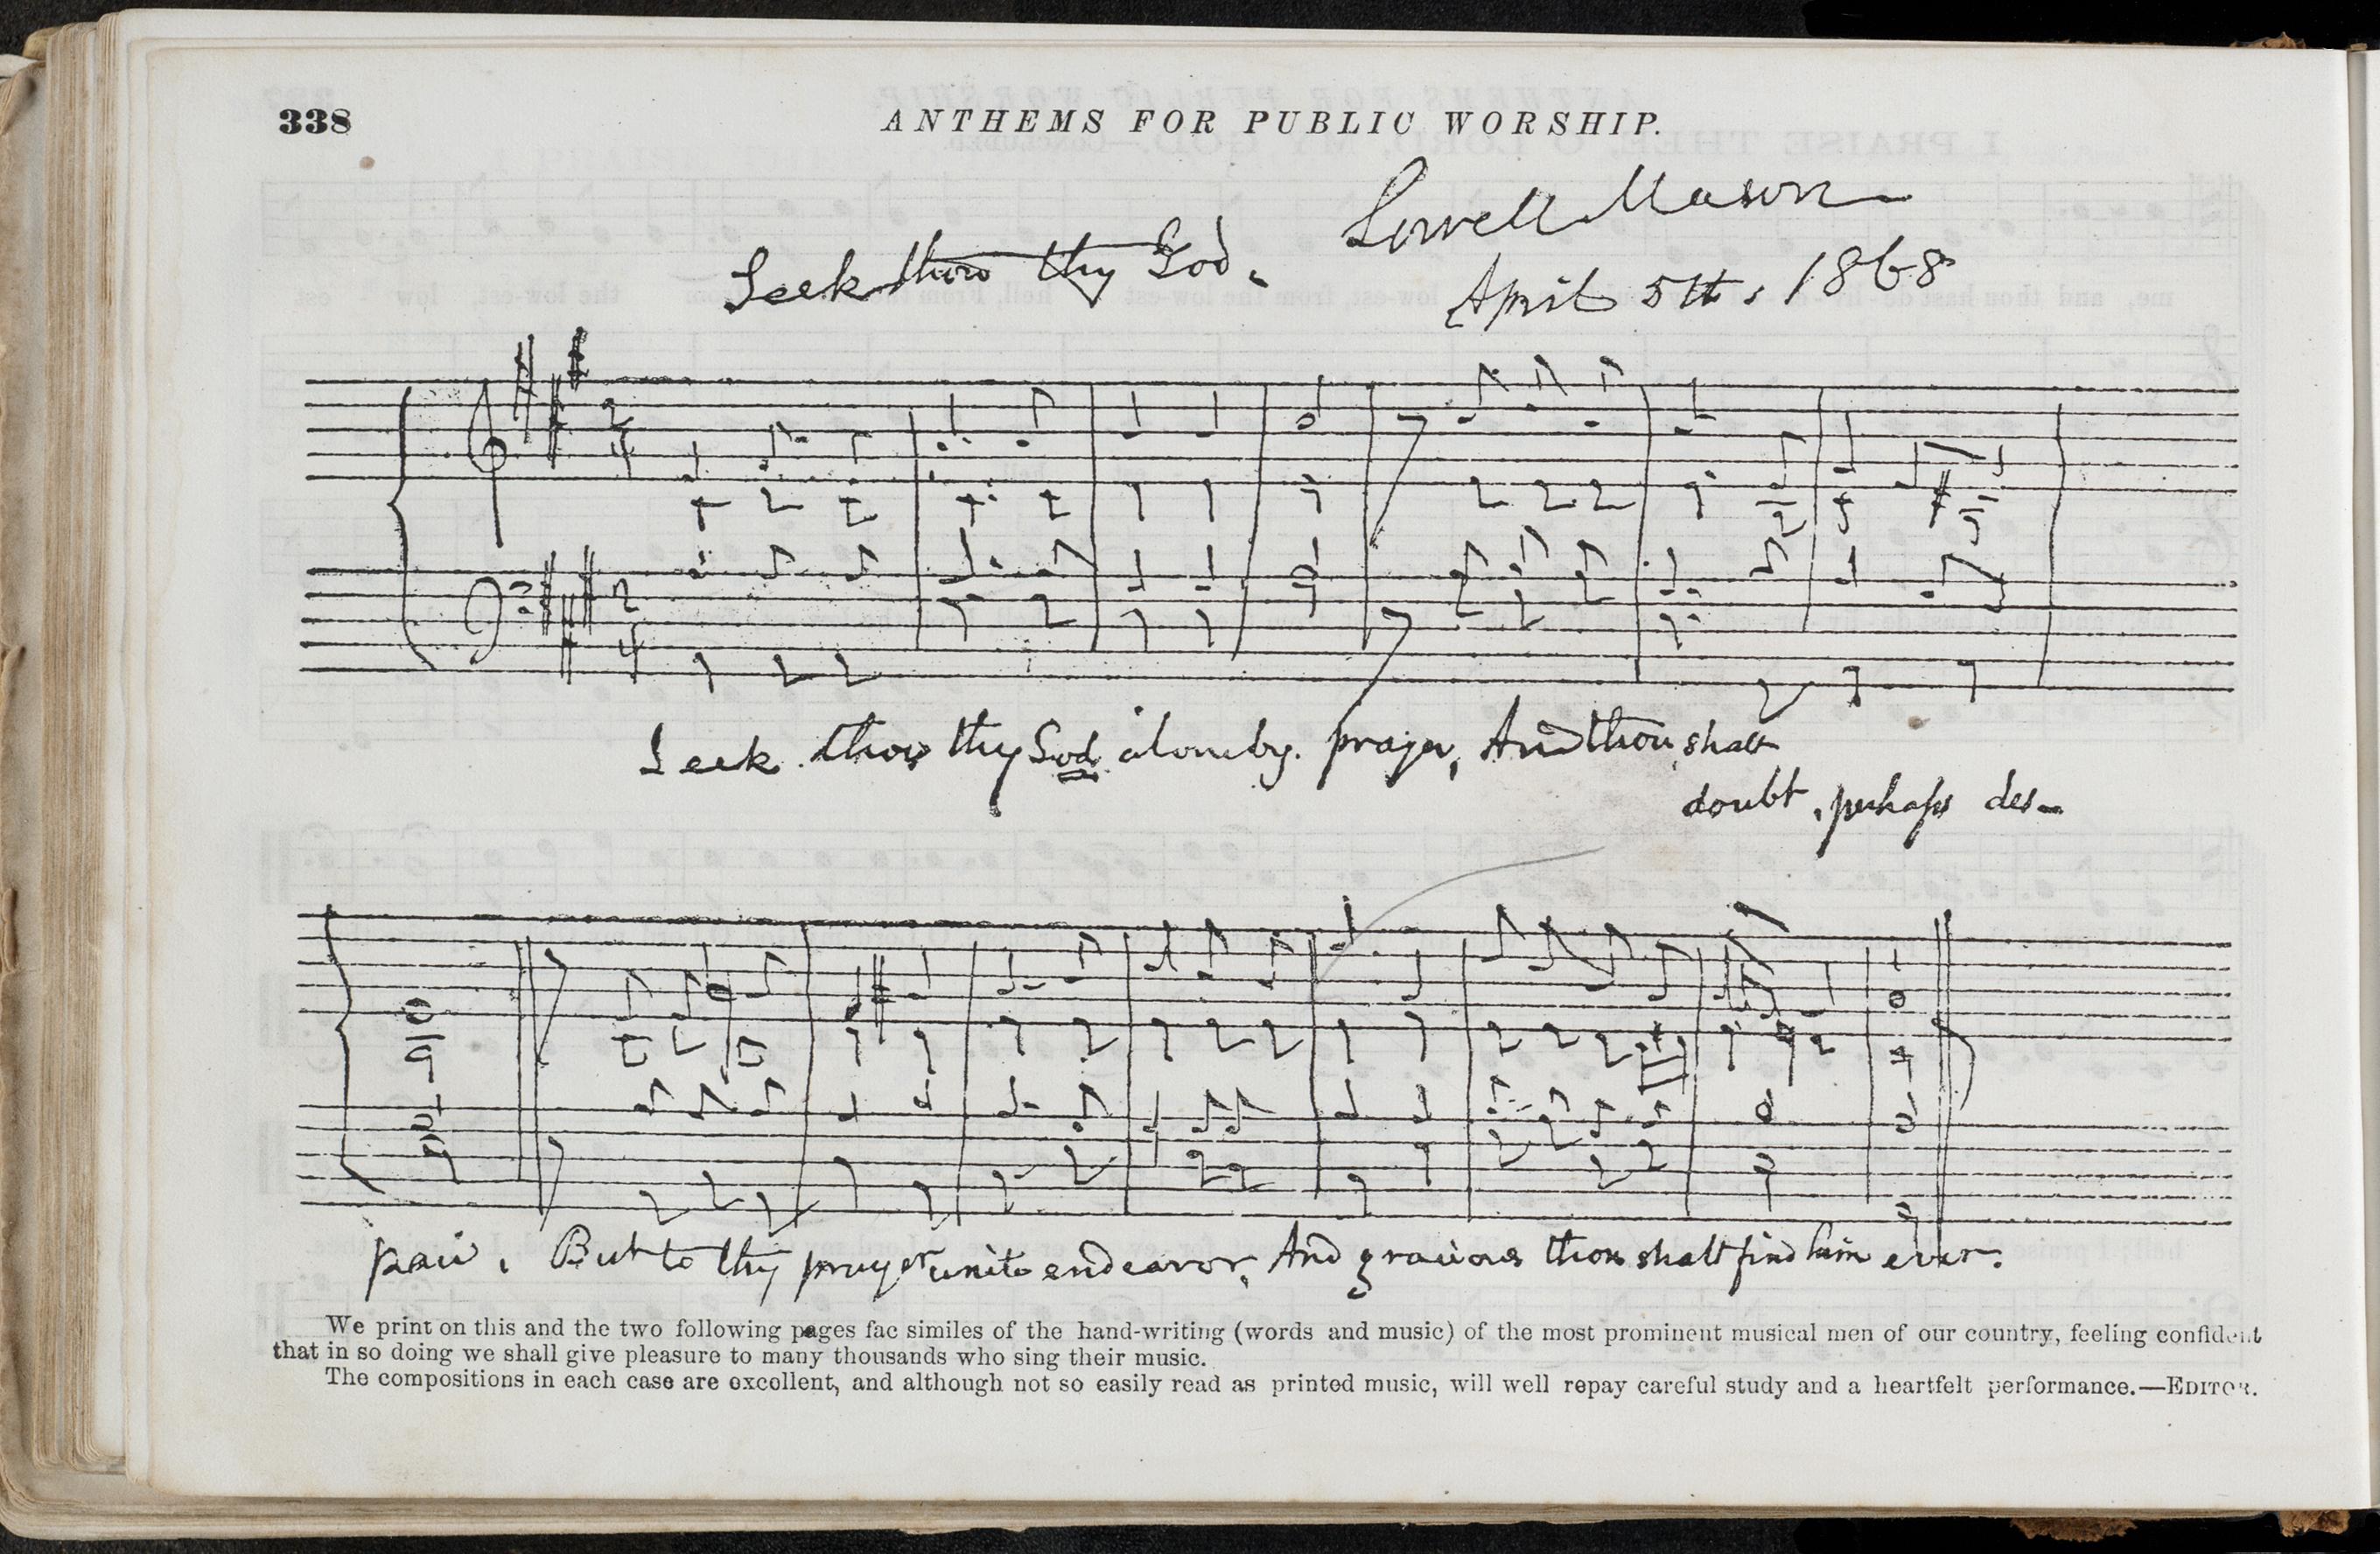 338
ANTHEMS FOR PUBLIC WORSHIP.
Lowell Mason
Seek thou thy God.
April 5th, 1868
2
4
2
4
Seek thou thy God alone by prayer, And thou shalt
doubt, perhaps des-
pair, But to thy prayer unite endeavor, And gracious thou shalt find him ever.
We print on this and the two following pages fac similes of the hand-writing (words and music) of the most prominent musical men of our country, feeling confident
that in so doing we shall give pleasure to many thousands who sing their music.
The compositions in each case are excellent, and although not so easily read as printed music, will well repay careful study and a heartfelt performance.—EDITOR.